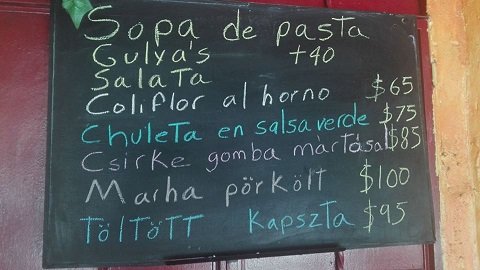 Sopa de pasta
Gulya's +40
Salata
Coliflor al horno $65
Chuleta en salsa verde $75
Csirke gomba martásal $85
Marha pörkölt $100
Töltött Kapszta $95